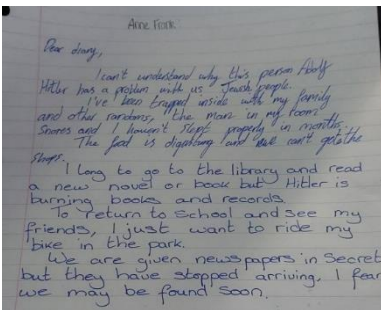 Anne Frank
Dear diary,
I can't understand why this person Adolf
Hitler has a problem with us Jewish people.
I've been trapped inside with my family
and other randoms, the man in my room
snores and I haven't slept properly in months.
The food is digusting and we can't get to the
shops.
I long to go to the library and read
a new novel or book but Hitler is
burning books and records.
To return to School and see my
friends, I just want to ride my
bike in the park.
We are given newspapers in Secret
but they have stopped arriving, I fear
we may be found soon.